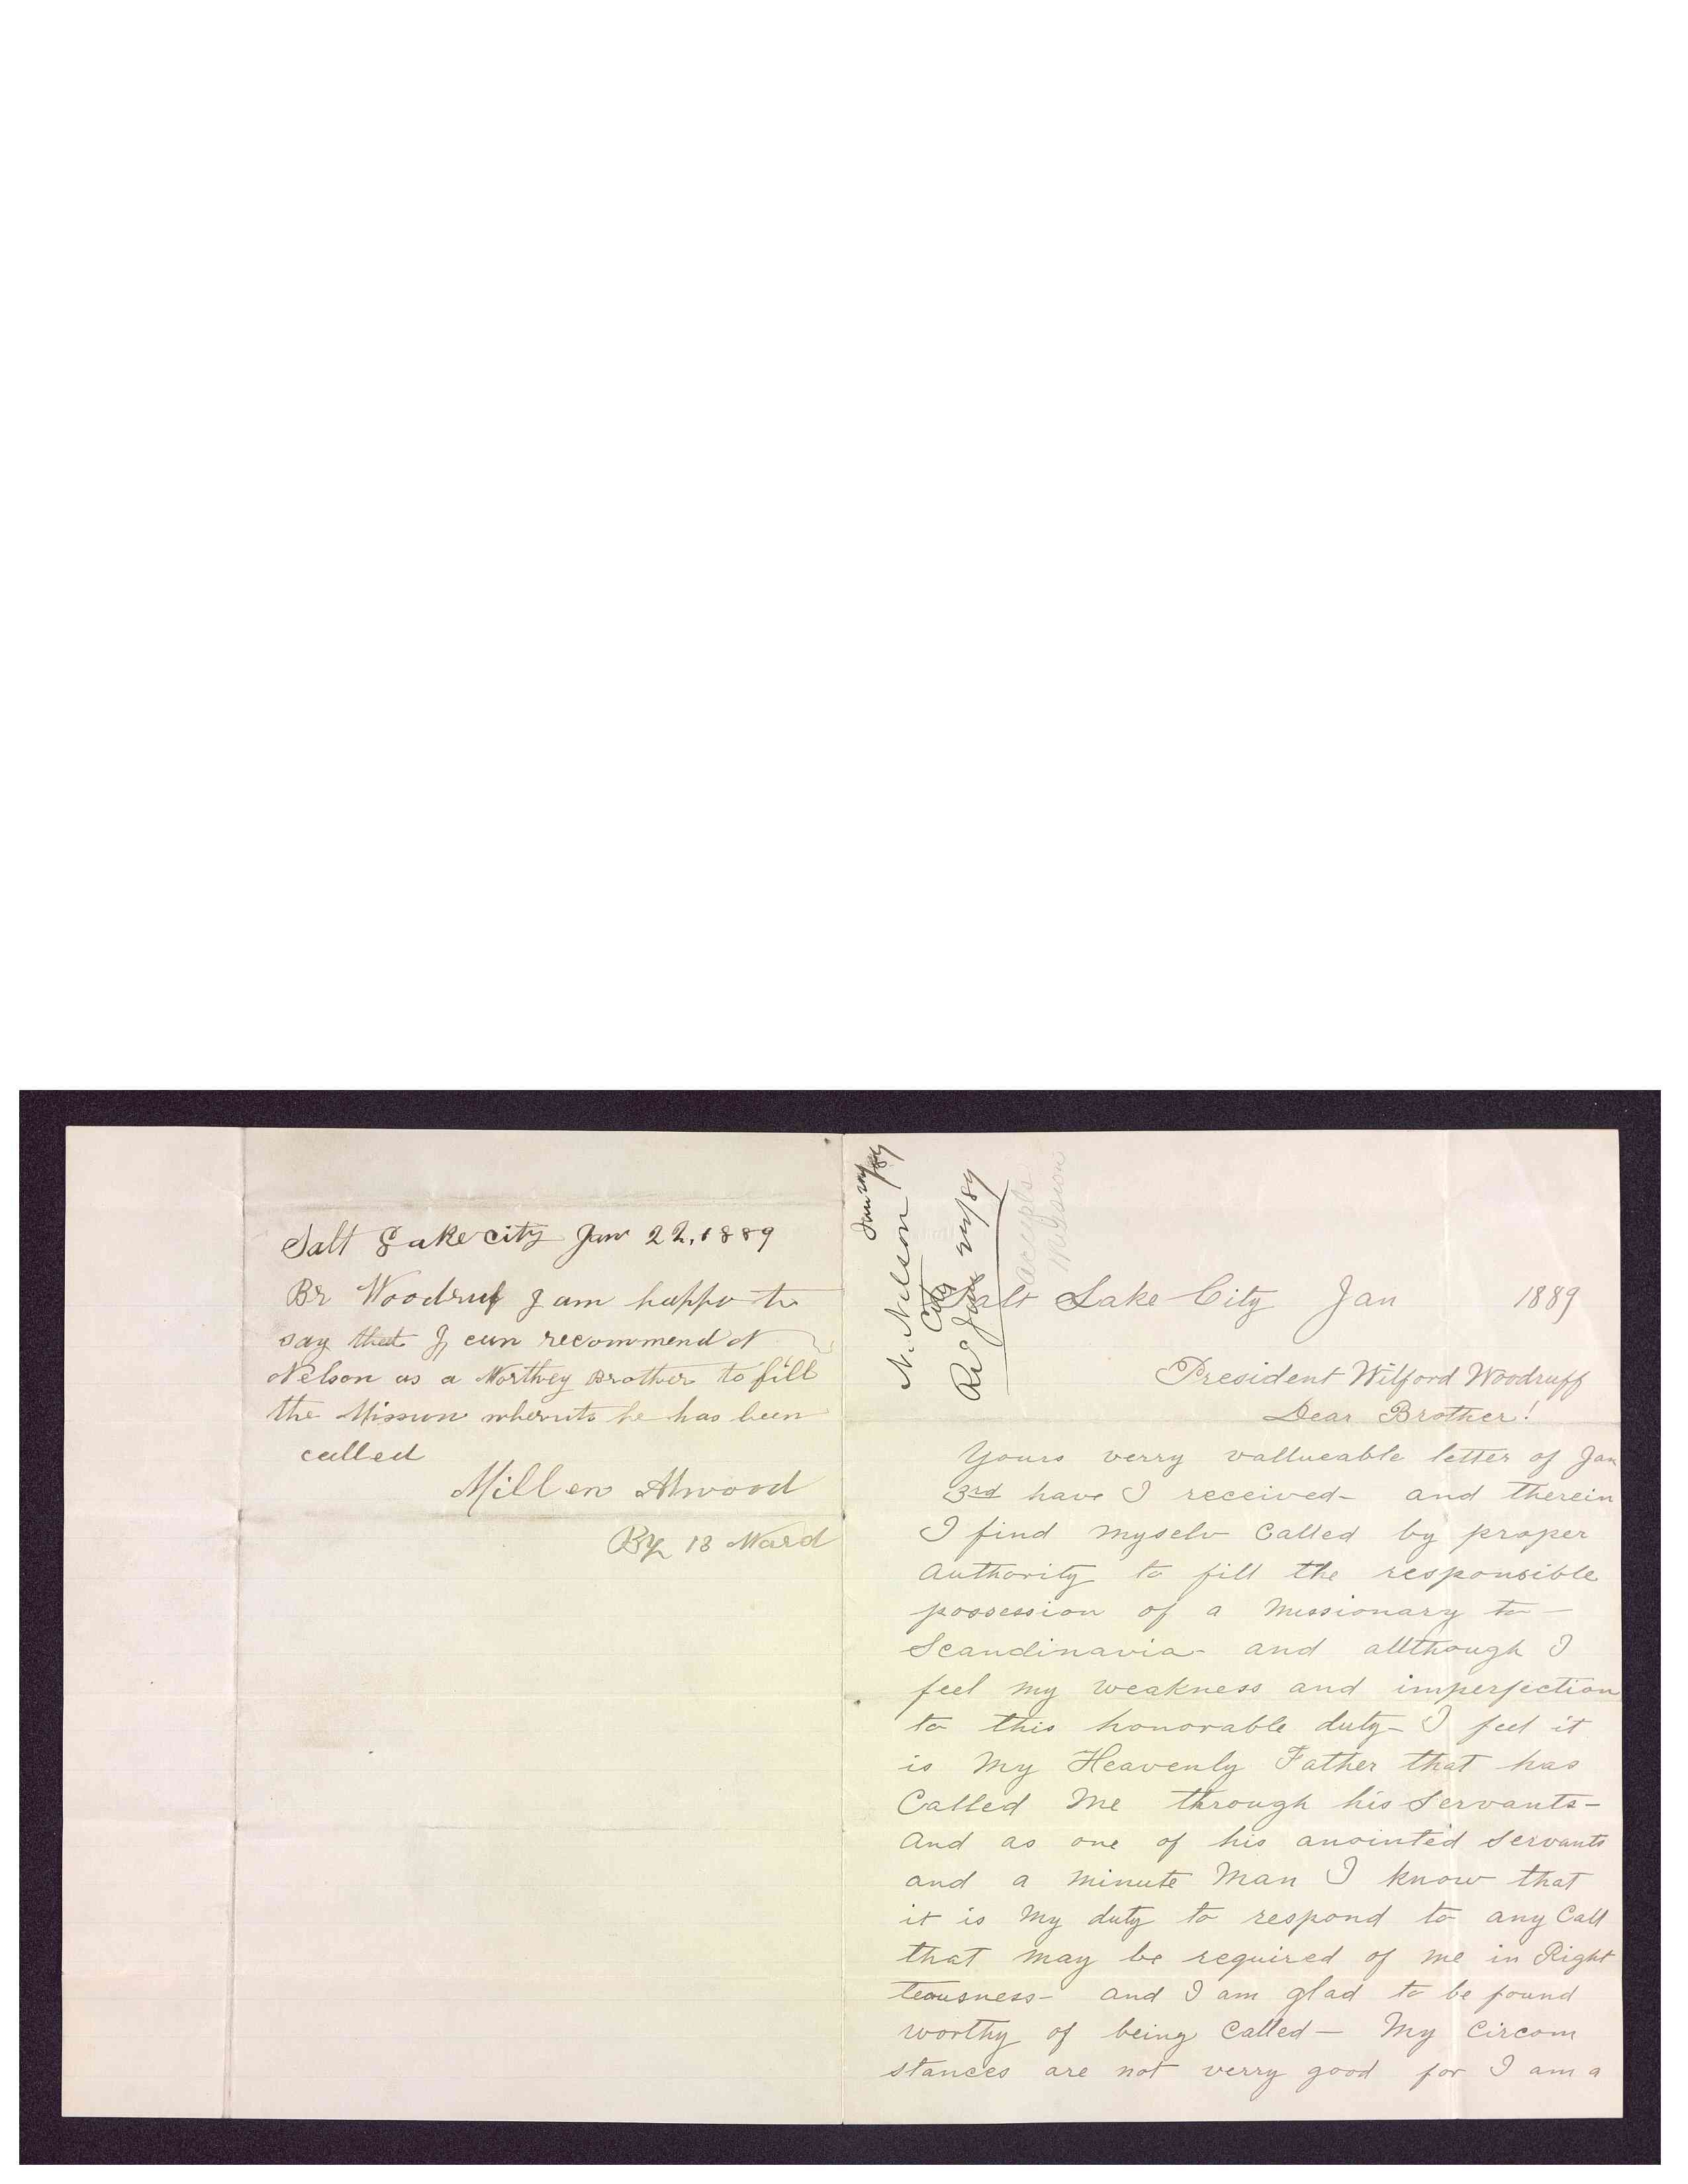 Salt Lake city Jan 22, 1889
Br Woodruf I am happy to
say that I can recommend N
Nelson as a Worthey Brother to fill
the Mission wherunto he has been
called
Millen Atwood
Bp 13 Ward
N. Nelson
City
Jan 22/89
accepts
Mission
Salt Lake City Jan 1889
President Wilford Woodruff
Dear Brother!
Yours verry vallueable letter of Jan
3rd have I received- and therein
I find myselv Called by proper
Authority to fill the responsible
possession of a Missionary to-
Scandinavia- and allthough I
feel my weakness and imperfection
to this honorable duty- I feel it
is My Heavenly Father that has
Called Me through his Servants-
And as one of his anointed Servants
and a Minute Man I know that
it is My duty to respond to any Call
that may be required of me in Right
teousness- and I am glad to be found
worthy of being Called- My Circom
stances are not verry good for I am a